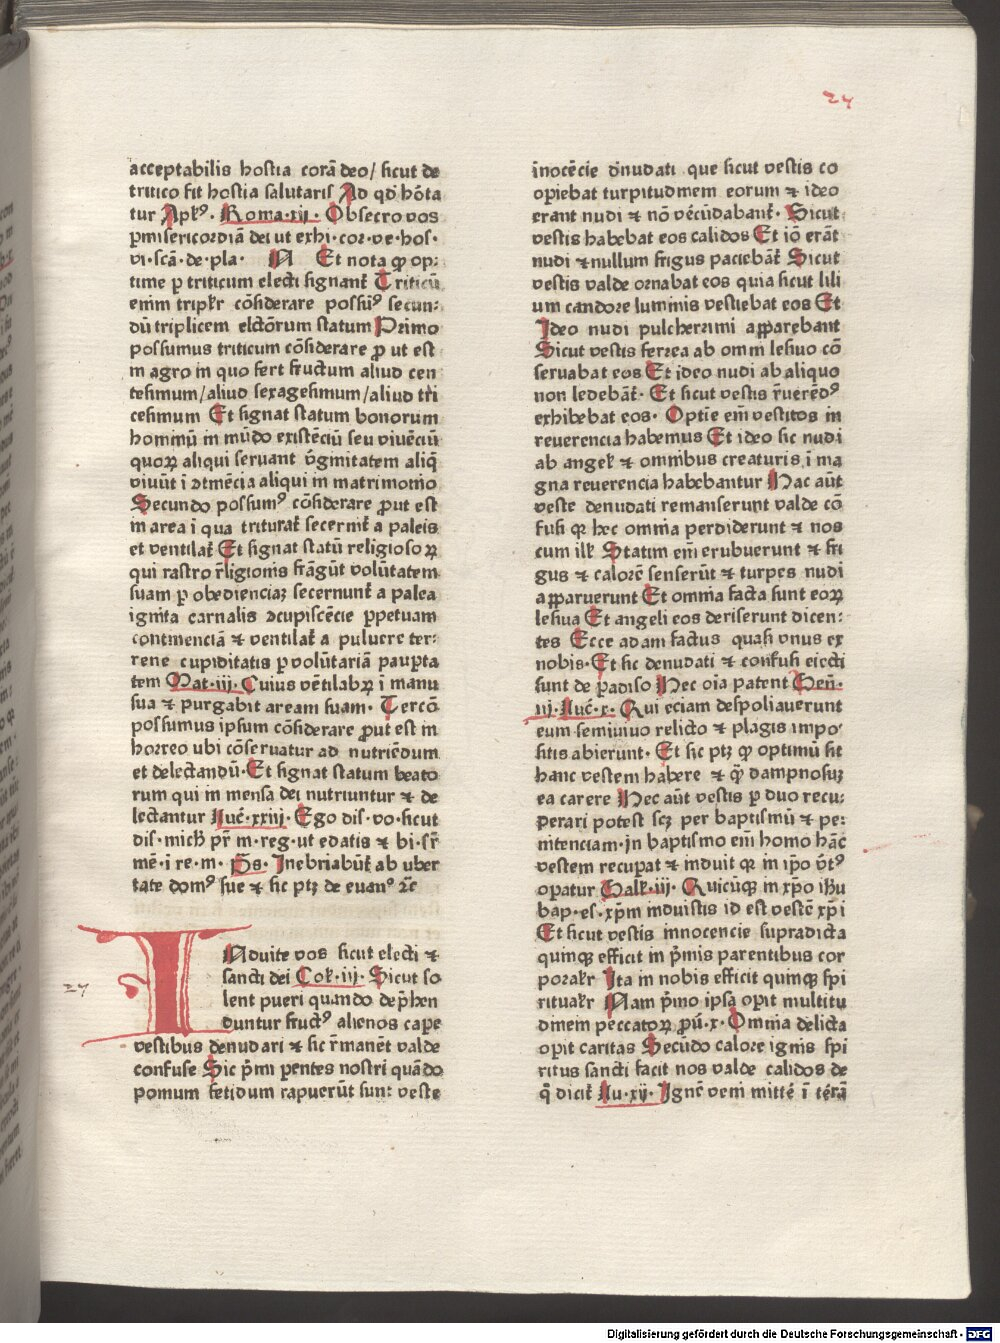 24
acceptabilis hostia corā deo/ sicut de
tritico fit hostia salutaris Ad qđ hōta
tur Apl'ꝰ. Roma.xij. Obsecro vos
p̱misericordiā dei ut exhi.cor.ve.hos.
vi.scā.de.pla. N Et nota ꝙ op-
time ꝑ triticum electi signant᷑ Triticū
enim triplr̄ cōsiderare possūꝰ secun-
dū triplicem elctōrum statum Primo
possumus triticum cōsiderare ꝓ ut est
in agro in quo fert fructum aliud cen
tesimum/aliud sexagesimum/aliud tri
cesimum Et signat statum bonorum
hominū in mūdo existēciū seu viuēciū
quoꝝ aliqui seruant v̄ginitatem aliq̄
viuūt ī ↄtinēcia aliqui in matrimonio
Secundo possumꝰ cōsiderare ꝓut est
in area ī qua triturat᷑ secernit᷑ a paleis
et ventilat᷑ Et signat statū religiosoꝝ
qui rastro r̄ligionis frāgūt volūtatem
suam ꝑ obedienciaꝫ secernunt᷑ a palea
ignita carnalis ↄcupiscēcie ꝑpetuam
continenciā ⁊ ventilat᷑ a puluere ter-
rene cupiditatis ꝑ volūtariā pauꝑta
tem Mat.iij. Cuius vētilabꝝ ī manu
sua ⁊ purgabit aream suam. Tercō
possumus ipsum cōsiderare ꝓut est in
horreo ubi cōseruatur ad nutriēdum
et delectandū. Et signat statum beato
rum qui in mensa dei nutriuntur ⁊ de
lectantur Luc̄.xxiij. Ego dis.vo.sicut
dis.mich pr̄ m.reg.ut edatis ⁊ bi.sr̄
mē.ī re.m. p̄s. Inebriabūt᷑ ab uber
tate domꝰ sue ⁊ sic ptꝫ de euanꝰ ⁊c̄
27
INduite vos sicut electi ⁊
sancti dei Col.iij. Sicut so
lent pueri quando dep̄hen
duntur fructꝰ alienos cape
vestibus denudari ⁊ sic r̄manēt valde
confuse Sic p̄mi pentes nostri quādo
pomum fetidum rapuerūt sunt veste
īnocēcie dn̄udati que sicut vestis co
opiebat turpitudinem eorum ⁊ ideo
erant nudi ⁊ nō vēcūdabant᷑. Sicut
vestis habebat eos calidos Et iō erāt
nudi ⁊ nullum frigus paciebāt᷑ Sicut
vestis valde ornabat eos quia sicut lili
um candore luminis vestiebat eos Et
Ideo nudi pulcherrimi apparebant
Sicut vestis ferrea ab omni lesiuo cō
seruabat eos Et ideo nudi ab aliquo
non ledebāt᷑. Et sicut vestis r̄uerēdꝰ
exhibebat eos. Optīe em̄ vestitos in
reuerencia habemus Et ideo sic nudi
ab angel' ⁊ omnibus creaturis ī ma
gna reuerencia habebantur Hac aūt
veste denudati remanserunt valde cō
fusi qꝫ hec omnia perdiderunt ⁊ nos
cum ill' Statim em̄ erubuerunt ⁊ fri
gus ⁊ calorē senserūt ⁊ turpes nudi
apparuerunt Et omnia facta sunt eoꝝ
lesiua Et angeli eos deriserunt dicen-
tes Ecce adam factus quasi vnus ex
nobis. Et sic denudati ⁊ confusi eiecti
sunt de padiso Hec oīa patent Gen̄.
iij. Luc̄.x. Qui eciam despoliauerunt
eum seminiuo relicto ⁊ plagis impo-
sitis abierunt. Et sic ptꝫ ꝙ optimū sit
hanc vestem habere ⁊ q̄ dampnosuꝫ
ea carere Hec aūt vestis ꝑ duo recu-
perari potest scꝫ per baptismū ⁊ pe-
nitenciam.in baptismo em̄ homo hāc
vestem recuꝑat ⁊ induit qꝫ in ip̄o v̄tꝰ
opatur Gall'.iij. Quicūqꝫ in xp̄o ihū
bap.es.xp̄m induistis id est vestē xp̄i
Et sicut vestis innocencie supradicta
quinqꝫ efficit in p̄mis parentibus cor
poralr̄ Ita in nobis efficit quinqꝫ sp̄i
ritualr̄ Nam p̄mo ip̄sa opit multitu
dinem peccatoꝝ ꝓu᷑.x. Omnia delicta
opit caritas Secūdo calore ignis sp̄i
ritus sancti facit nos valde calidos de
q̄ dicit᷑ Lu.xij. Ignē veni mittē ī tērā
Digitalisierung gefördert durch die Deutsche Forschungsgemeinschaft - DFG